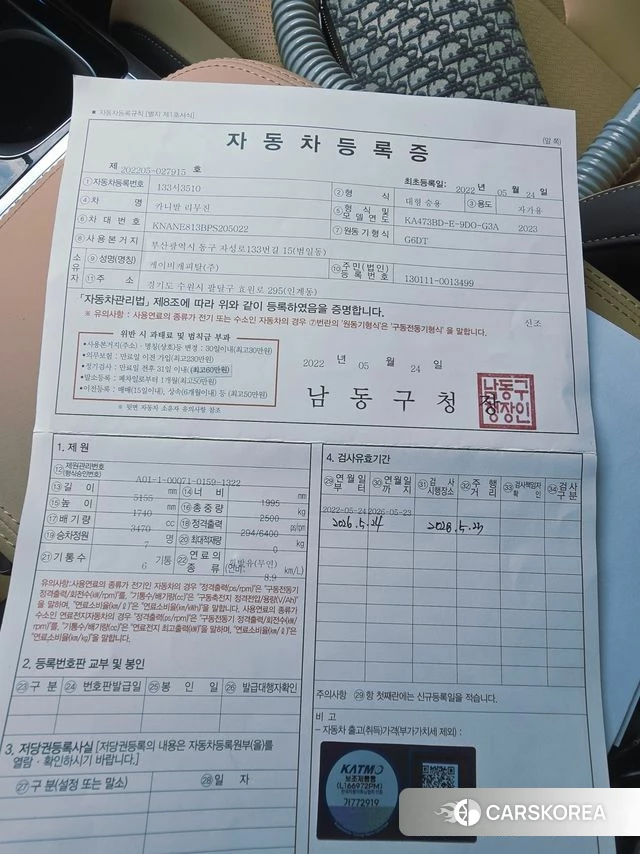 ■ 자동차등록규칙 [별지 제1호서식]
(앞 쪽)
자 동 차 등 록 증
제 202205-027915 호
최초등록일: 2022 년 05 월 24 일
① 자동차등록번호 133서3510 ② 형 식 대형 승용 ③ 용도 자가용
④ 차 명 카니발 리무진 ⑤ 형 식 및 모델연도 KA473BD-E-9DO-G3A 2023
⑥ 차 대 번 호 KNANE813BPS205022 ⑦ 원동기형식 G6DT
⑧ 사용본거지 부산광역시 동구 자성로133번길 15(범일동)
소유자 ⑨ 성명(명칭) 케이비캐피탈(주) ⑩ 주민(법인)등록번호 130111-0013499
⑪ 주 소 경기도 수원시 팔달구 효원로 295(인계동)
「자동차관리법」 제8조에 따라 위와 같이 등록하였음을 증명합니다.
※ 유의사항: 사용연료의 종류가 전기 또는 수소인 자동차의 경우 ⑦번란의 '원동기형식'은 '구동전동기형식'을 말합니다.
신조
위반 시 과태료 및 범칙금 부과
•사용본거지(주소)·명칭(상호)등 변경 : 30일이내(최고30만원)
•의무보험 : 만료일 이전 가입(최고230만원)
•정기검사 : 만료일 전후 31일 이내(최고60만원)
•말소등록 : 폐차일로부터 1개월(최고50만원)
•이전등록 : 매매(15일이내), 상속(6개월이내) 등 (최고50만원)
※ 뒷면 자동차 소유자 유의사항 참조
2022 년 05 월 24 일
남 동 구 청 장
남동구청장인
1. 제 원
⑫ 제원관리번호(형식승인번호) A01-1-00071-0159-1322
⑬ 길 이 5155 mm ⑭ 너 비 1995 mm
⑮ 높 이 1740 mm ⑯ 총 중 량 2500 kg
⑰ 배 기 량 3470 cc ⑱ 정격출력 294/6400 ps/rpm
⑲ 승차정원 7 명 ⑳ 최대적재량 0 kg
㉑ 기 통 수 6 기통 ㉒ 연료의 종류 휘발유(무연) (연비: 8.9 km/L)
유의사항:사용연료의 종류가 전기인 자동차의 경우 "정격출력(ps/rpm)"은 "구동전동기
정격출력/회전수(㎾/rpm)"를, "기통수/배기량(cc)"은 "구동축전지 정격전압/용량(V/Ah)"
을 말하며, "연료소비율(㎞/ℓ)"은 "연료소비율(㎞/㎾h)"을 말합니다. 사용연료의 종류가
수소인 연료전지자동차의 경우 "정격출력(ps/rpm)"은 "구동전동기 정격출력/회전수(㎾/
rpm)"를, "기통수/배기량(cc)"은 "연료전지 최고출력(㎾)"을 말하며, "연료소비율(㎞/ℓ)"은
"연료소비율(㎞/㎏)"을 말합니다.
2. 등록번호판 교부 및 봉인
㉓ 구 분 ㉔ 번호판발급일 ㉕ 봉 인 일 ㉖ 발급대행자확인
3. 저당권등록사실 [저당권등록의 내용은 자동차등록원부(을)를
열람·확인하시기 바랍니다.]
㉗ 구 분(설정 또는 말소) ㉘ 일 자
4. 검사유효기간
㉙ 연월일부터 ㉚ 연월일까지 ㉛ 검사시행장소 ㉜ 주행거리 ㉝ 검사책임자확인 ㉞ 검사구분
2022-05-24 2026-05-23
2026.5.24 2028.5.23
주의사항 ㉙ 항 첫째란에는 신규등록일을 적습니다.
비 고
- 자동차 출고(취득)가격(부가가치세 제외) :
KATMO
보조제동등
(L166972PM)
기772919
CARSKOREA